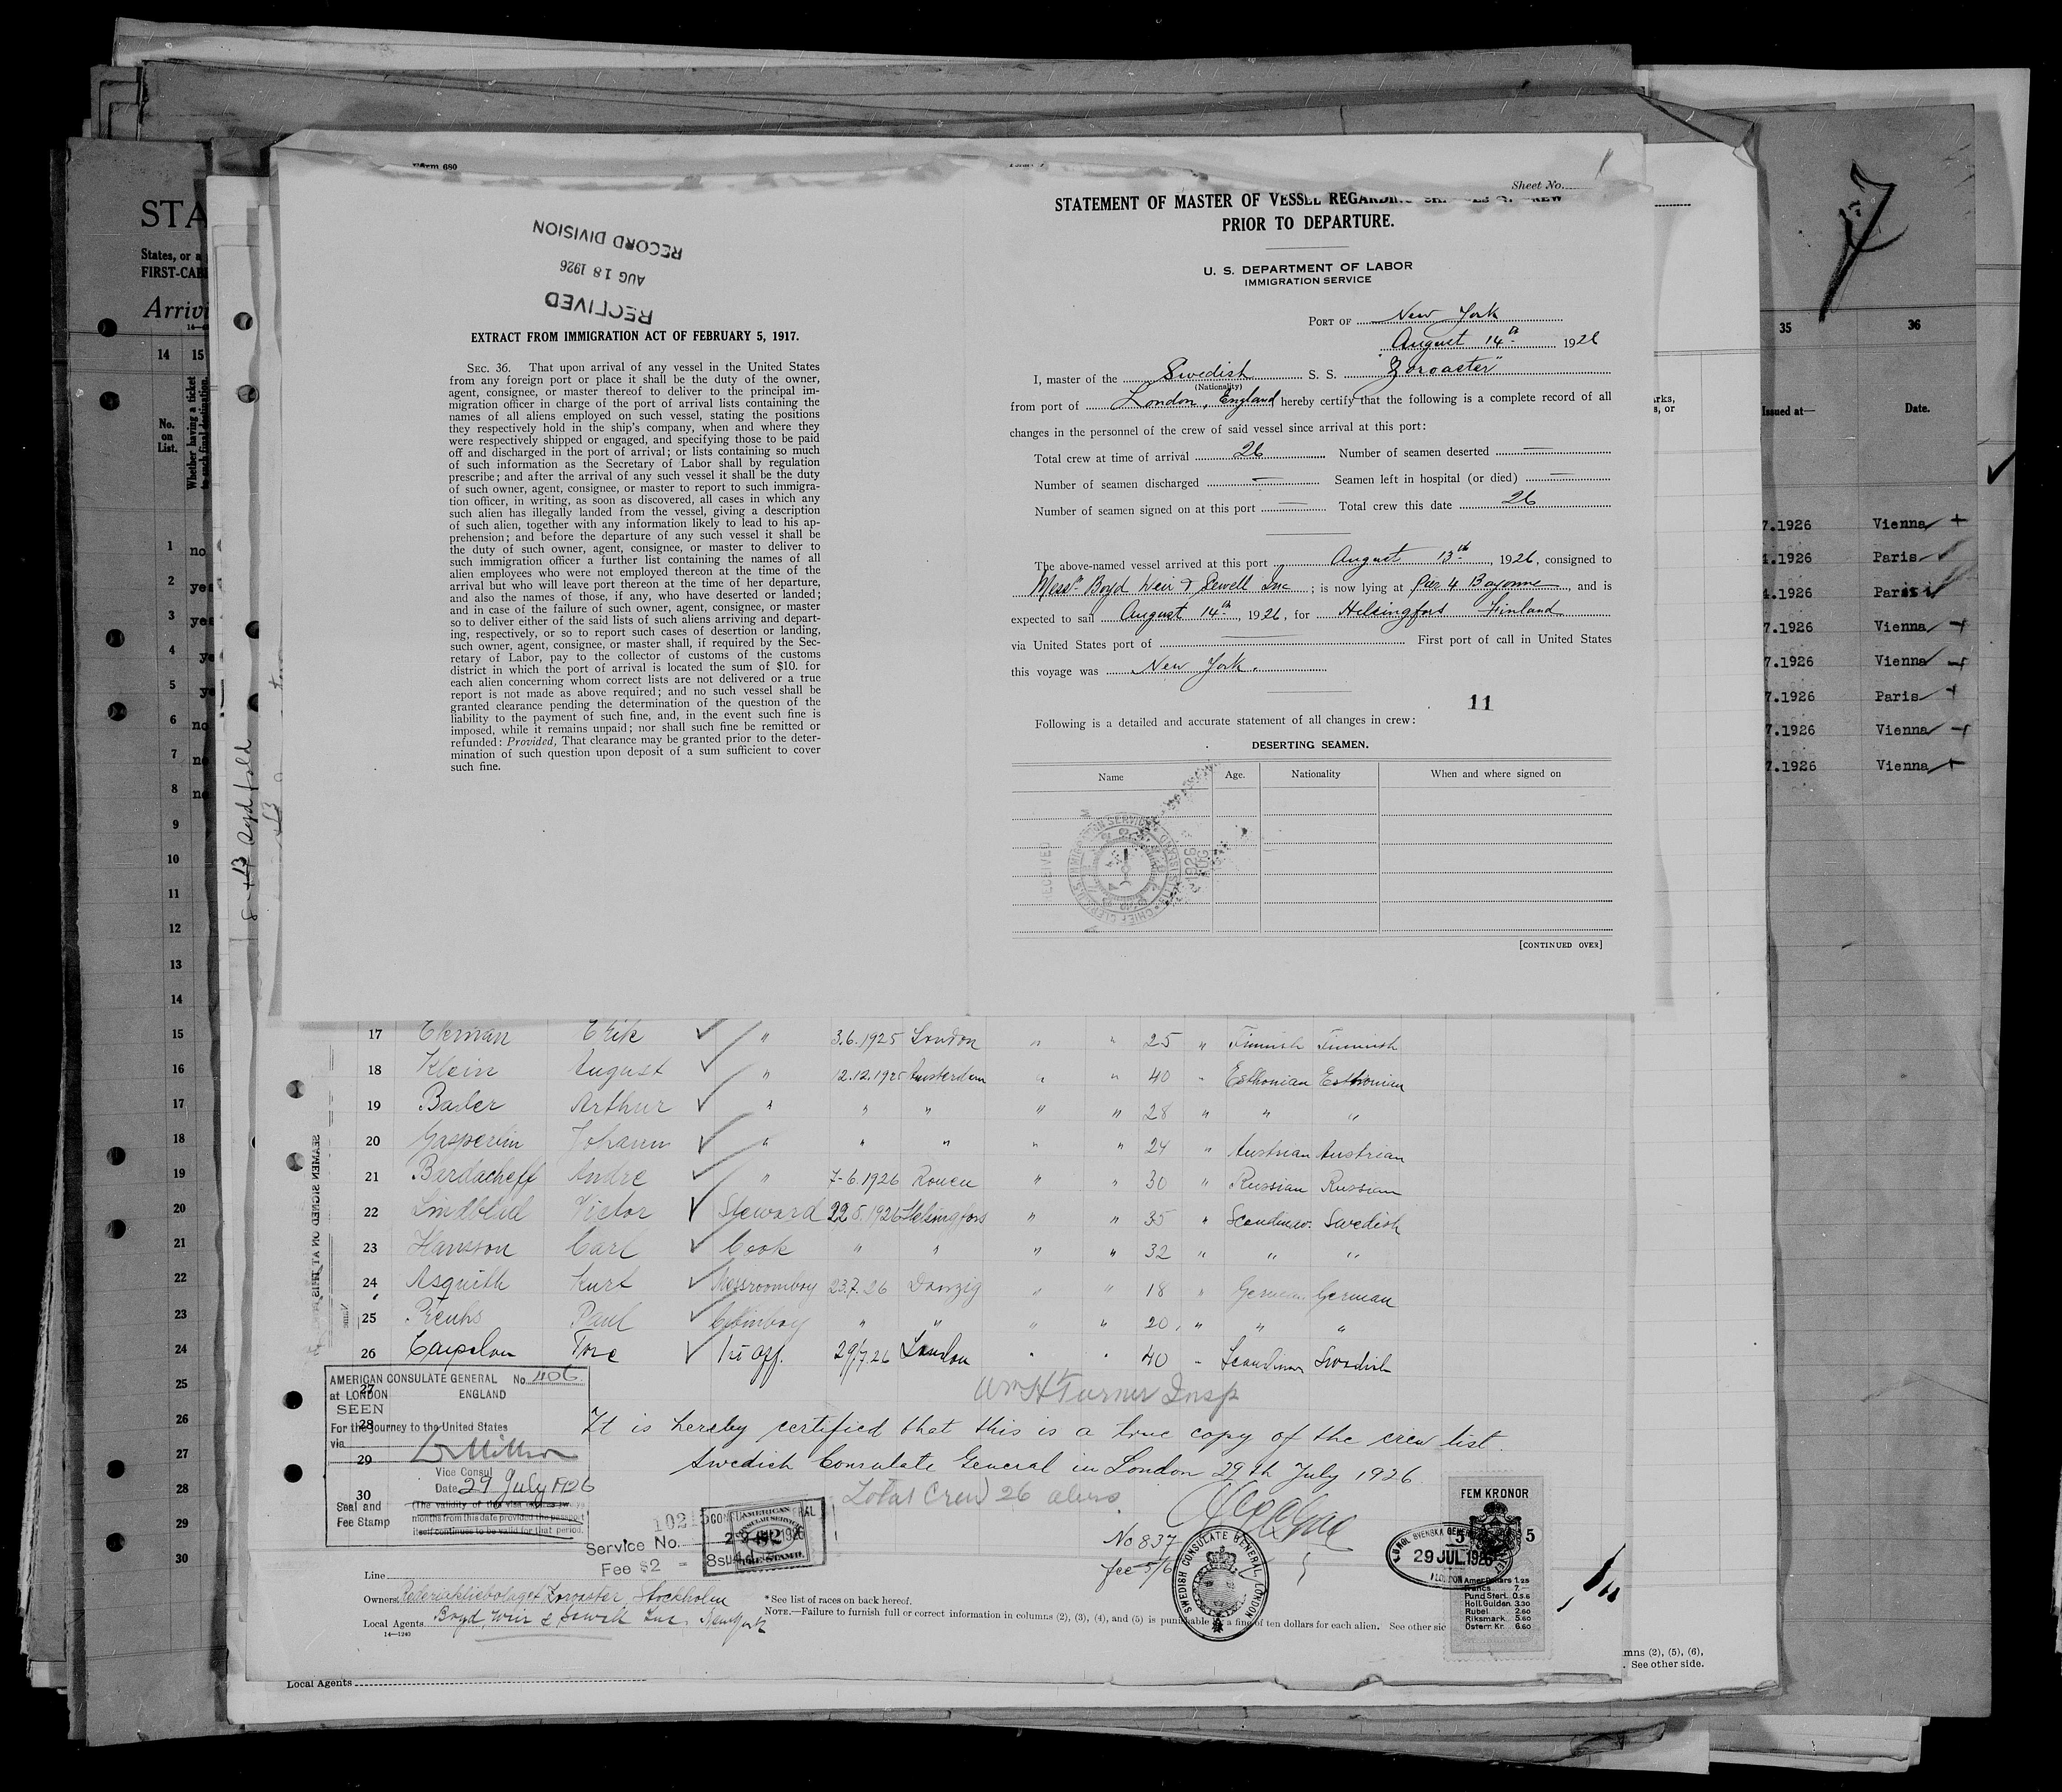 Form 680
RECEIVED
AUG 18 1926
RECORD DIVISION
EXTRACT FROM IMMIGRATION ACT OF FEBRUARY 5, 1917.
SEC. 36. That upon arrival of any vessel in the United States
from any foreign port or place it shall be the duty of the owner,
agent, consignee, or master thereof to deliver to the principal im-
migration officer in charge of the port of arrival lists containing the
names of all aliens employed on such vessel, stating the positions
they respectively hold in the ship's company, when and where they
were respectively shipped or engaged, and specifying those to be paid
off and discharged in the port of arrival; or lists containing so much
of such information as the Secretary of Labor shall by regulation
prescribe; and after the arrival of any such vessel it shall be the duty
of such owner, agent, consignee, or master to report to such immigra-
tion officer, in writing, as soon as discovered, all cases in which any
such alien has illegally landed from the vessel, giving a description
of such alien, together with any information likely to lead to his ap-
prehension; and before the departure of any such vessel it shall be
the duty of such owner, agent, consignee, or master to deliver to
such immigration officer a further list containing the names of all
alien employees who were not employed thereon at the time of the
arrival but who will leave port thereon at the time of her departure,
and also the names of those, if any, who have deserted or landed;
and in case of the failure of such owner, agent, consignee, or master
so to deliver either of the said lists of such aliens arriving and depart-
ing, respectively, or so to report such cases of desertion or landing,
such owner, agent, consignee, or master shall, if required by the Sec-
retary of Labor, pay to the collector of customs of the customs
district in which the port of arrival is located the sum of $10. for
each alien concerning whom correct lists are not delivered or a true
report is not made as above required; and no such vessel shall be
granted clearance pending the determination of the question of the
liability to the payment of such fine, and, in the event such fine is
imposed, while it remains unpaid; nor shall such fine be remitted or
refunded: Provided, That clearance may be granted prior to the deter-
mination of such question upon deposit of a sum sufficient to cover
such fine.
Sheet No. 1
STATEMENT OF MASTER OF VESSEL REGARDING
PRIOR TO DEPARTURE.
U. S. DEPARTMENT OF LABOR
IMMIGRATION SERVICE
PORT OF New York
August 14th 1926
I, master of the Swedish S. S. "Zoroaster"
(Nationality)
from port of London, England hereby certify that the following is a complete record of all
changes in the personnel of the crew of said vessel since arrival at this port:
Total crew at time of arrival 26 Number of seamen deserted —
Number of seamen discharged — Seamen left in hospital (or died) —
Number of seamen signed on at this port — Total crew this date 26
The above-named vessel arrived at this port August 13th, 1926, consigned to
Messrs Boyd Weir & Sewell Inc; is now lying at Pier 4 Bayonne, and is
expected to sail August 14th, 1926, for Helsingfors Finland
via United States port of — First port of call in United States
this voyage was New York.
11
Following is a detailed and accurate statement of all changes in crew:
DESERTING SEAMEN.
Name Age. Nationality When and where signed on
[CONTINUED OVER]
STA
States, or a
FIRST-CAB
Arrivi
14 15
No. on List.
Whether having a ticket to such final destination.
1 no
2 yes
3 yes
4 ye
5 ye
6 no
7 no
8 no
9
10
11
12
13
14
15
16
17
18
19
20
21
22
23
24
25
26
27
28
29
30
7
35 36
Issued at— Date.
7.1926 Vienna
4.1926 Paris
4.1926 Paris
7.1926 Vienna
7.1926 Vienna
7.1926 Paris
7.1926 Vienna
7.1926 Vienna
17 Ekman Erik " 3.6.1925 London " " 25 " Finnish Finnish
18 Klein August " 12.12.1925 Amsterdam " " 40 " Esthonian Esthonian
19 Basler Arthur " " " " " 28 " " "
20 Gasperlin Johann " " " " " 24 " Austrian Austrian
21 Bardacheff Andre " 7-6.1926 Rouen " " 30 " Russian Russian
22 Lindblad Victor Steward 22.5.1926 Helsingfors " " 35 " Scandinav. Swedish
23 Hansson Carl Cook " " " " 32 " " "
24 Asquith Kurt Messroomboy 23.7.26 Danzig " " 18 " German German
25 Paul Cabinboy " " " " 20 " " "
26 Tore 1st Off. 29/7.26 London " " 40 " Swedish
Wm H Turner Insp
AMERICAN CONSULATE GENERAL No 406
at LONDON ENGLAND
SEEN
For the journey to the United States
via
Vice Consul
Date 29 July 1926
Seal and
Fee Stamp
(The validity of this visa expires twelve
months from this date provided the passport
itself continues to be valid for that period.
27
28
29
30
It is hereby certified that this is a true copy of the crew list.
Swedish Consulate General in London 29th July 1926
Total Crew 26 aliens
Service No.
Fee $2 =
No 837
fee 5/6
SWEDISH CONSULATE GENERAL, LONDON
FEM KRONOR
5 5
29 JUL. 1926
I LONDON
Amer. Dollars 1.25
Francs 7.—
Pund Sterl. 0.5.6
Holl. Gulden 3.30
Rubel 2.60
Riksmark 5.60
Österr. Kr. 6.60
Line
Owners Rederiaktiebolaget Zoroaster, Stockholm
Local Agents Boyd, Weir & Sewell Inc. New York
14—1240
*See list of races on back hereof.
NOTE.—Failure to furnish full or correct information in columns (2), (3), (4), and (5) is punishable by a fine of ten dollars for each alien. See other sid
mns (2), (5), (6),
See other side.
Local Agents